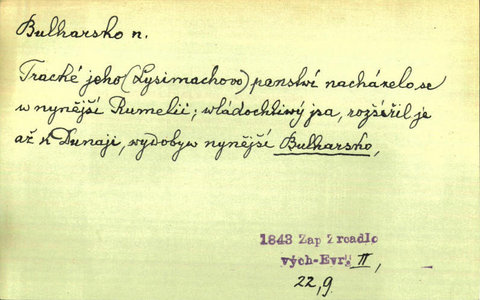 Bulharsko n.
Tracké jeho (Lysimachovo) panství nacházelo se
w nynější Rumelii; wládochtiwý jsa, rozšířil je
až k Dunaji, wydobyw nynější Bulharsko,
1843 Zap Zrcadlo
vých-Evr. II,
22,9.